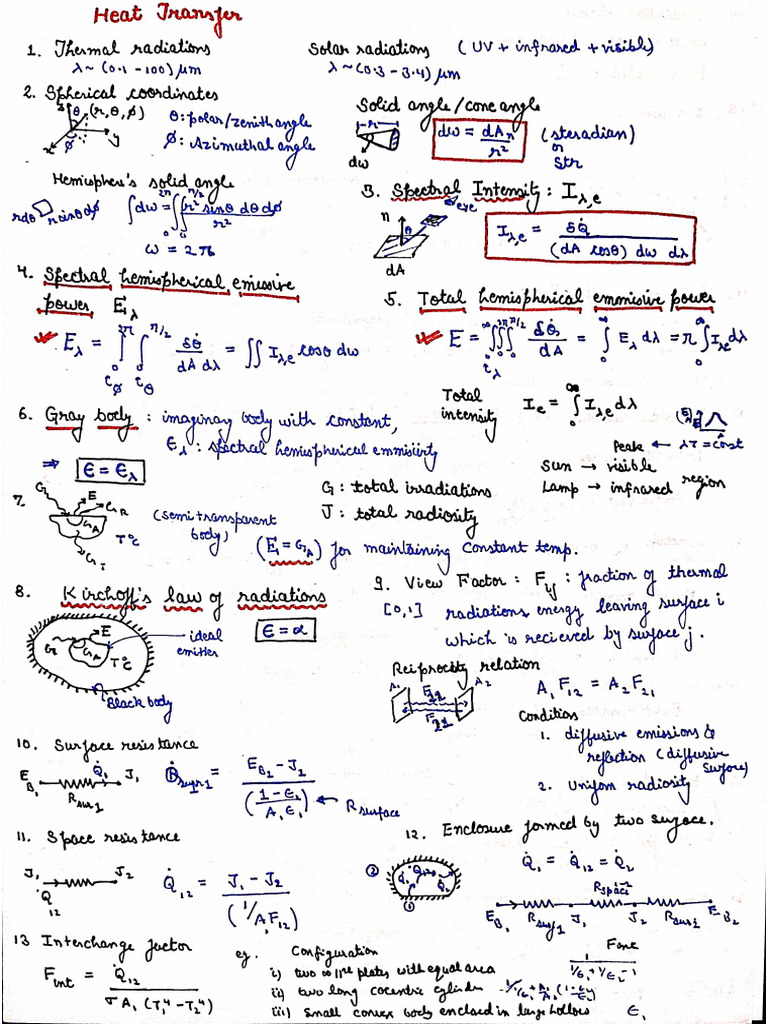 Heat Transfer
1. Thermal radiations
λ ~ (0.1 - 100) μm
Solar radiations (UV + infrared + visible)
λ ~ (0.3 - 3.4) μm
2. Spherical coordinates
z θ (r, θ, ϕ)
y
x ϕ
θ: polar/zenith angle
ϕ: Azimuthal angle
Solid angle/cone angle
r
dω
dω = dAn / r²
(steradian)
or
Str
Hemisphere's solid angle
rdθ rsinθdϕ
∫dω = ∫₀^2π ∫₀^π/2 r² sinθ dθ dϕ / r²
ω = 2π
3. Spectral Intensity: I λ,e
n θ eye
dA
I λ,e = δQ̇ / (dA cosθ) dω dλ
4. Spectral hemispherical emissive
power Eλ
Eλ = ∫₀^2π ∫₀^π/2 δQ̇ / dA dλ = ∬ Iλe cosθ dω
ϕ θ
5. Total hemispherical emmisive power
E = ∫₀^∞ ∫₀^2π ∫₀^π/2 δQ̇ / dA = ∫₀^∞ Eλ dλ = π ∫₀^∞ Iλe dλ
λ
Total
intensity Ie = ∫₀^∞ Iλ,e dλ
6. Gray body : imaginary body with constant,
ϵλ : spectral hemispherical emmisivity
⇒ ϵ = ϵλ
Peak ← λT = const
Sun → visible
Lamp → infrared region
7.
G E GR
GA
T°C
GT
(semi transparent
body)
G: total irradiations
J: total radiosity
(E = GA) for maintaining constant temp.
8. Kirchoff's law of radiations
ϵ = α
G E
GA
T°C
ideal
emitter
Black body
9. View Factor : Fij : fraction of thermal
[0,1] radiations energy leaving surface i
which is recieved by surface j.
Reciprocity relation
A1 F12 A2
F21
A1 F12 = A2 F21
Conditions
1. diffusive emissions &
reflection (diffusive
surface)
2. Uniform radiosity
10. Surface resistance
EB1 Q̇1 J1
Rsur1
= EB2 - J2 / (1 - ϵ1 / A1 ϵ1) ← Rsurface
11. Space resistance
J1 J2
Q̇12
Q̇12 = J1 - J2 / (1/A1F12)
12. Enclosure formed by two surface.
② Q̇1 Q̇12 Q̇2
①
Q̇1 = Q̇12 = Q̇2
Rspace 1-2
EB1 Rsur1 J1 J2 Rsur2 EB2
13 Interchange factor
Fint = Q̇12 / σ A1 (T1⁴ - T2⁴)
eg. Configuration
i) two ∞ llel plates with equal area
1 / 1/ϵ1 + 1/ϵ2 - 1
ii) two long cocentric cylinder
iii) Small convex body enclosed in large hollow ϵ1